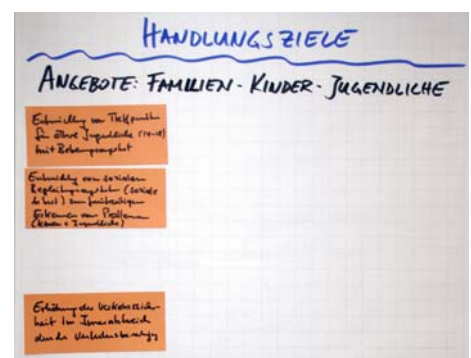 HANDLUNGSZIELE
ANGEBOTE: FAMILIEN - KINDER - JUGENDLICHE
Entwicklung von Treffpunkt
für ältere Jugendliche
mit
Entwicklung von sozialen
(soziale
Arbeit) zum frühzeitigen
Erkennen von Problemen
(Kinder + Jugendliche)
Erhöhung der Verkehrssicher-
heit im
durch Verkehrsberuhigung